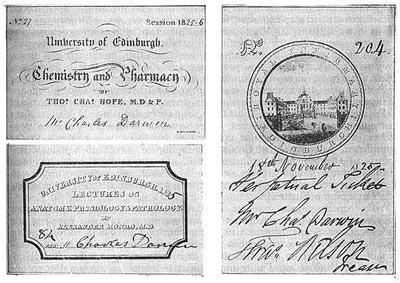 No. 27 Session 1825-6
University of Edinburgh.
Chemistry and Pharmacy
BY
THOS. CHAS. HOPE, M.D & P.
Mr Charles Darwin
UNIVERSITY OF EDINBURGH 1825
LECTURES ON
ANATOMY, PHYSIOLOGY & PATHOLOGY
BY
ALEXANDER MONRO, M.D.
Charles Darwin
No. 204.
ROYAL INFIRMARY
EDINBURGH
18th November 1825
Perpetual Ticket
Mr Chas Darwin
Wilson
Treasr